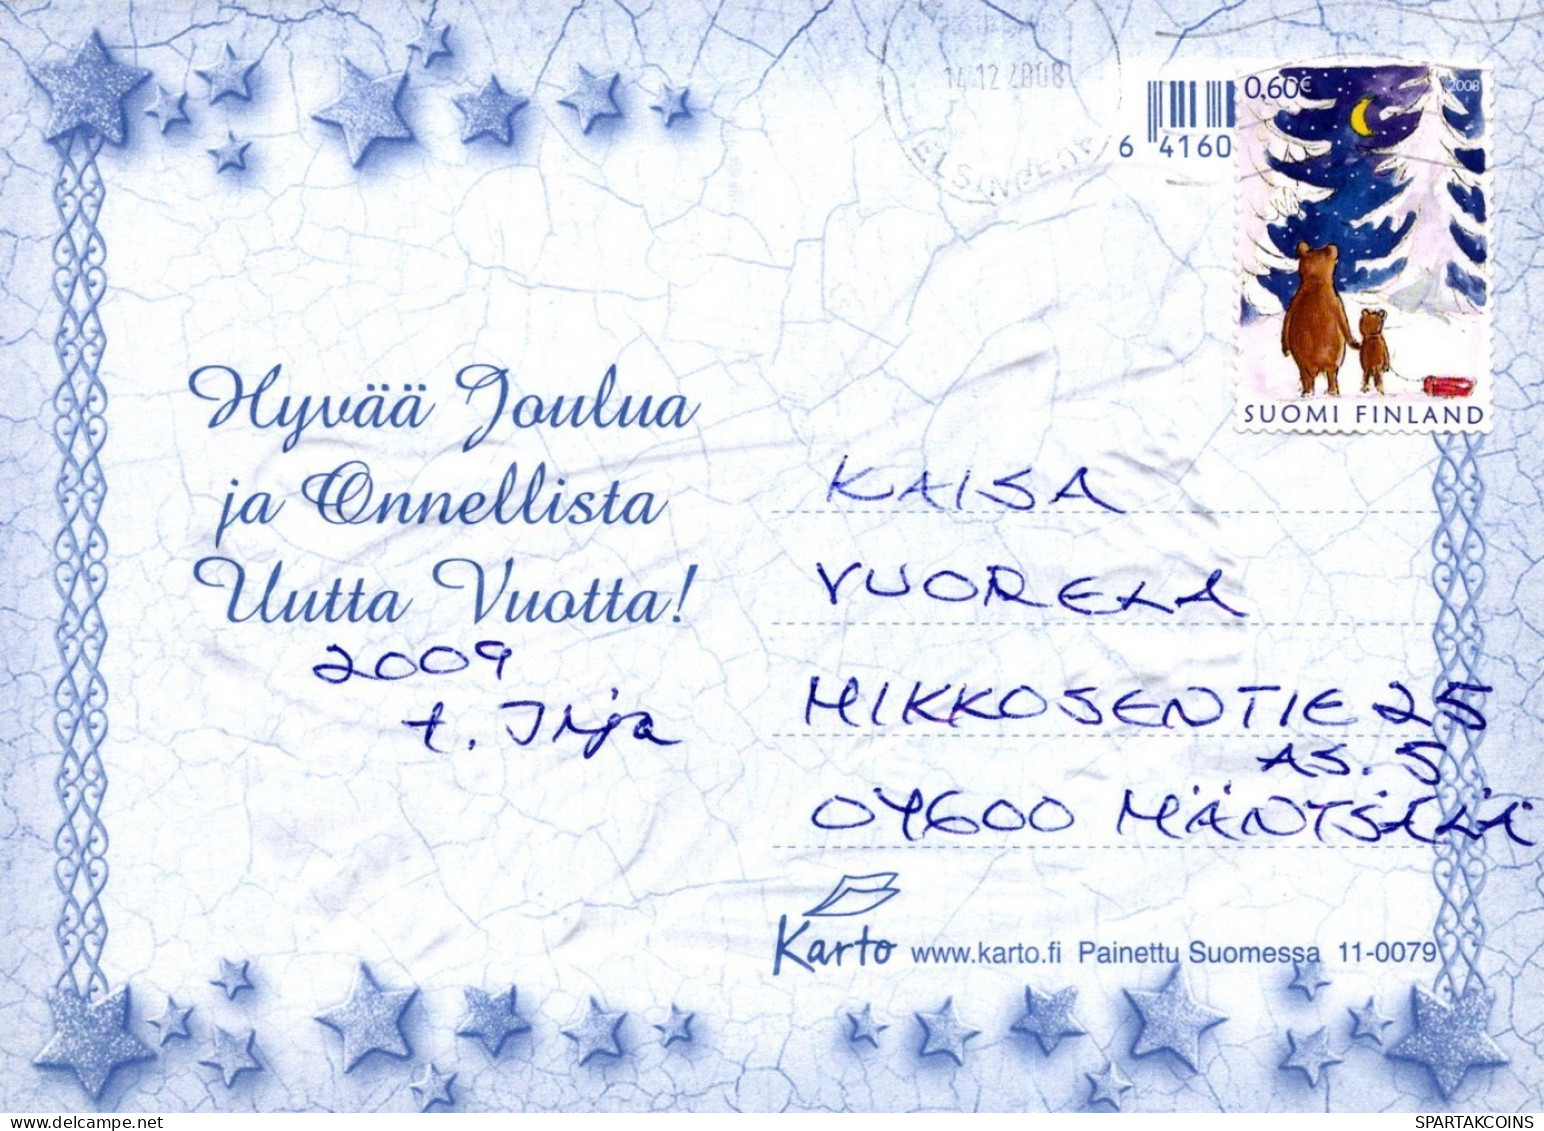 14.12.2008
ELSINGFORS
6 4160
0,60€
2008
SUOMI FINLAND
Hyvää Joulua
ja Onnellista
Uutta Vuotta!
2009
t. Irja
KAISA
VUORELA
MIKKOSENTIE 25
AS. 5
04600 MÄNTSÄLÄ
Karto www.karto.fi Painettu Suomessa 11-0079
SPARTAKCOINS